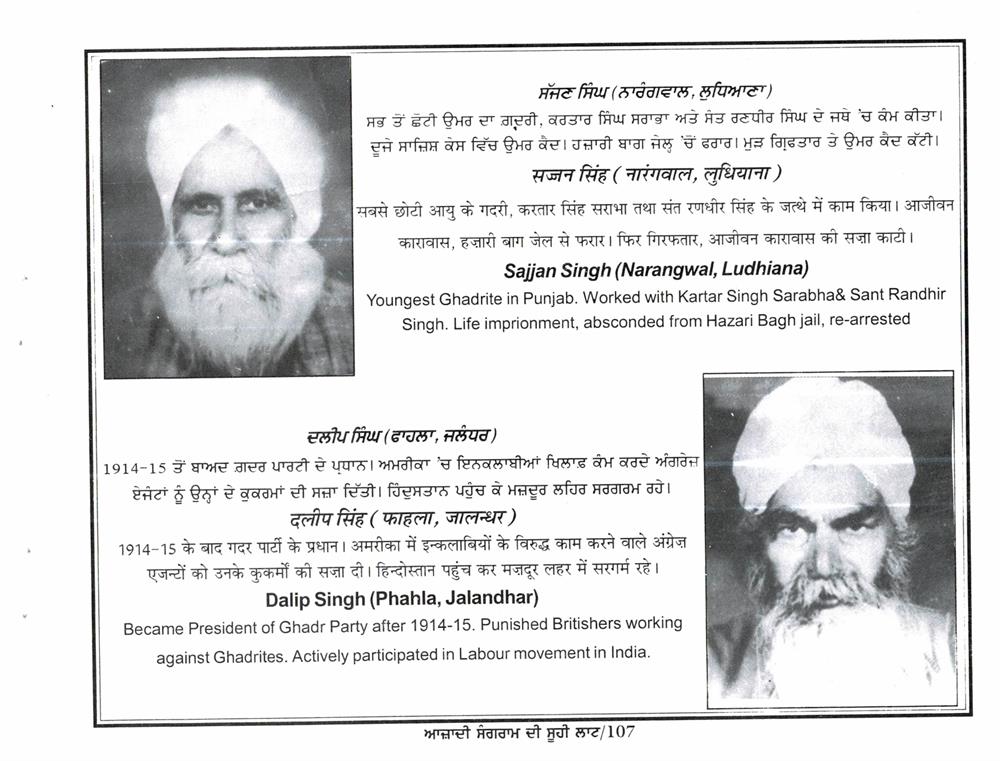 ਸੱਜਣ ਸਿੰਘ (ਨਾਰੰਗਵਾਲ, ਲੁਧਿਆਣਾ)
ਸਭ ਤੋਂ ਛੋਟੀ ਉਮਰ ਦਾ ਗ਼ਦਰੀ, ਕਰਤਾਰ ਸਿੰਘ ਸਰਾਭਾ ਅਤੇ ਸੰਤ ਰਣਧੀਰ ਸਿੰਘ ਦੇ ਜਥੇ 'ਚ ਕੰਮ ਕੀਤਾ।
ਦੂਜੇ ਸਾਜ਼ਿਸ਼ ਕੇਸ ਵਿੱਚ ਉਮਰ ਕੈਦ। ਹਜ਼ਾਰੀ ਬਾਗ ਜੇਲ੍ਹ 'ਚੋਂ ਫਰਾਰ। ਮੁੜ ਗ੍ਰਿਫਤਾਰ ਤੇ ਉਮਰ ਕੈਦ ਕੱਟੀ।
सज्जन सिंह ( नारंगवाल, लुधियाना )
सबसे छोटी आयु के गदरी, करतार सिंह सराभा तथा संत रणधीर सिंह के जत्थे में काम किया। आजीवन
कारावास, हज़ारी बाग जेल से फरार। फिर गिरफतार, आजीवन कारावास की सज़ा काटी।
Sajjan Singh (Narangwal, Ludhiana)
Youngest Ghadrite in Punjab. Worked with Kartar Singh Sarabha& Sant Randhir
Singh. Life imprionment, absconded from Hazari Bagh jail, re-arrested
ਦਲੀਪ ਸਿੰਘ (ਫਾਹਲਾ, ਜਲੰਧਰ)
1914-15 ਤੋਂ ਬਾਅਦ ਗ਼ਦਰ ਪਾਰਟੀ ਦੇ ਪ੍ਰਧਾਨ। ਅਮਰੀਕਾ 'ਚ ਇਨਕਲਾਬੀਆਂ ਖਿਲਾਫ਼ ਕੰਮ ਕਰਦੇ ਅੰਗਰੇਜ਼
ਏਜੰਟਾਂ ਨੂੰ ਉਨ੍ਹਾਂ ਦੇ ਕੁਕਰਮਾਂ ਦੀ ਸਜ਼ਾ ਦਿੱਤੀ। ਹਿੰਦੁਸਤਾਨ ਪਹੁੰਚ ਕੇ ਮਜ਼ਦੂਰ ਲਹਿਰ ਸਰਗਰਮ ਰਹੇ।
दलीप सिंह ( फाहला, जालन्धर )
1914-15 के बाद गदर पार्टी के प्रधान। अमरीका में इन्कलाबियों के विरुद्ध काम करने वाले अंग्रेज़
एजन्टों को उनके कुकर्मों की सज़ा दी। हिन्दोस्तान पहुंच कर मज़दूर लहर में सरगर्म रहे।
Dalip Singh (Phahla, Jalandhar)
Became President of Ghadr Party after 1914-15. Punished Britishers working
against Ghadrites. Actively participated in Labour movement in India.
ਆਜ਼ਾਦੀ ਸੰਗਰਾਮ ਦੀ ਸੂਹੀ ਲਾਟ/107